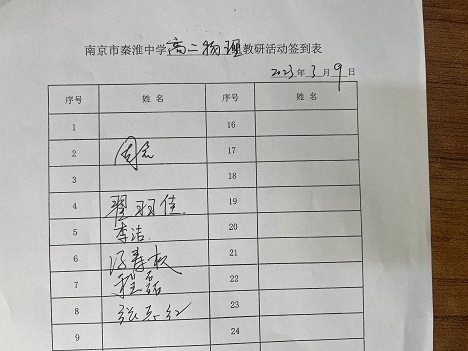 南京市秦淮中学高二物理教研活动签到表
2023年3月9日
序号 姓名 序号 姓名
1 16
2 17
3 18
4 19
翟羽佳
5 李洁 20
6 21
7 程磊 22
8 23
9 24